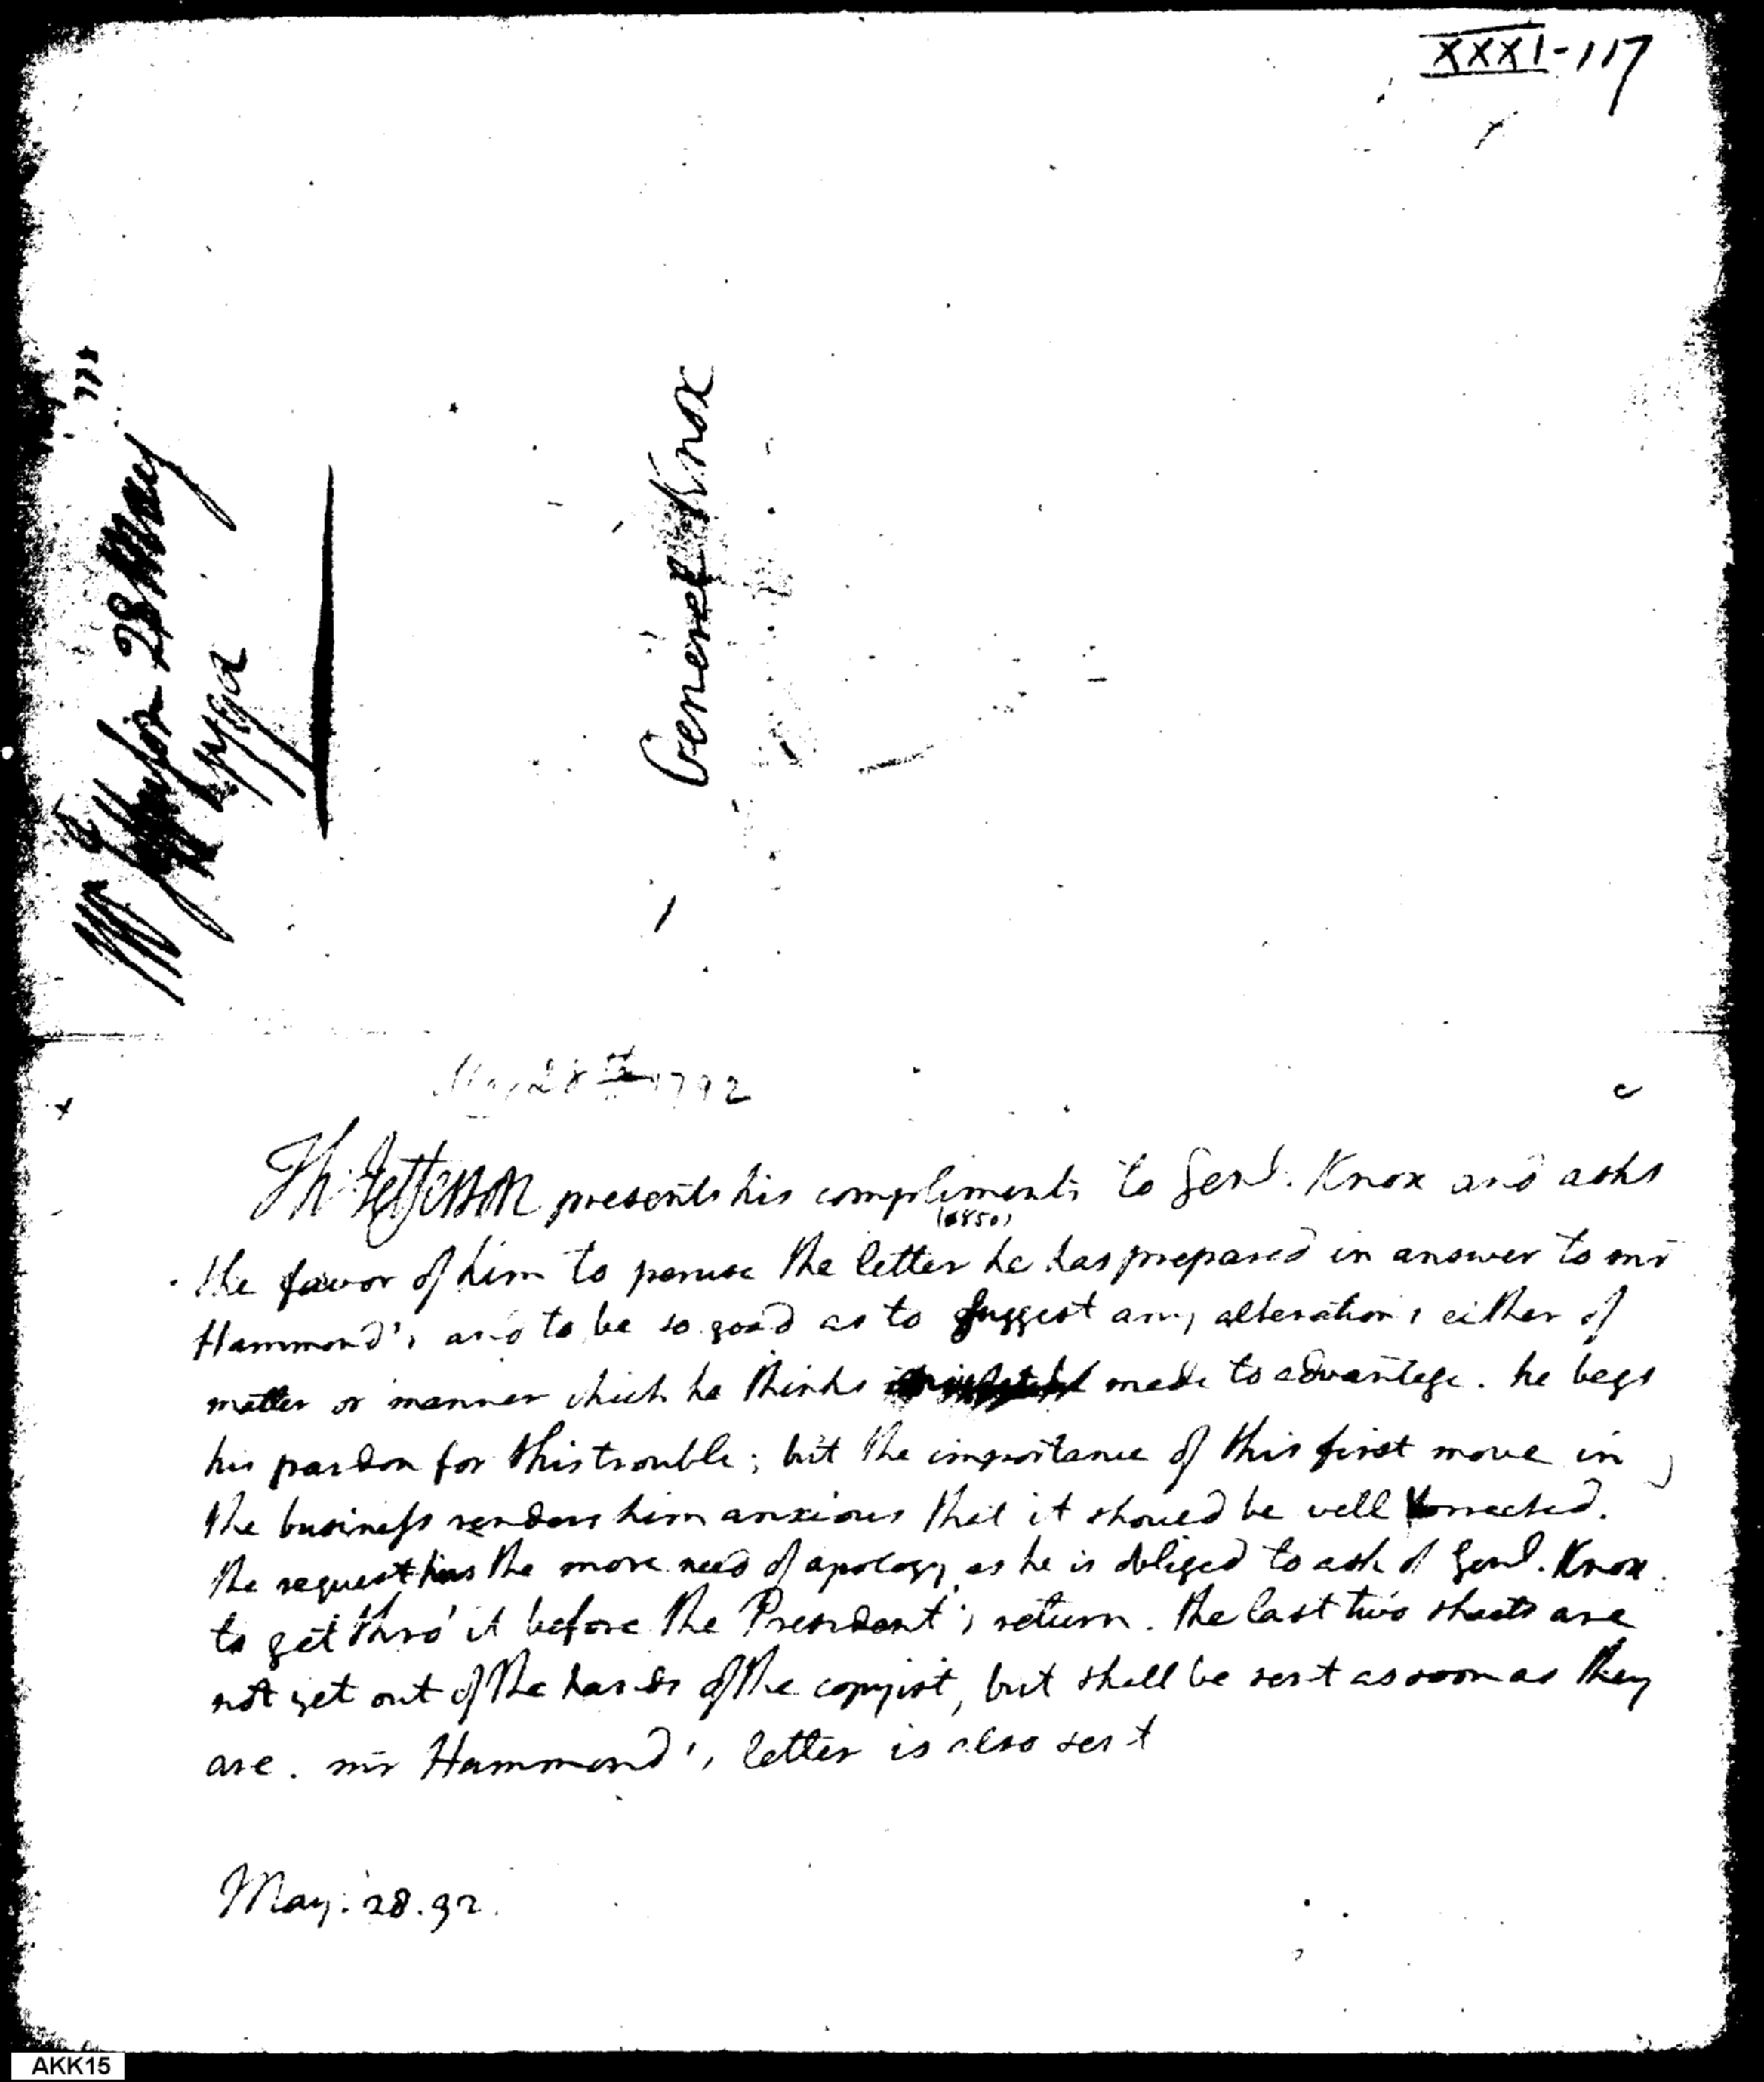 XXXI-117
28 May
1792
General Knox
May 28th 1792
Th: Jefferson presents his compliments to Genl. Knox and asks
the favor of him to peruse the letter he has prepared in answer to mr
Hammond's, and to be so good as to suggest any alterations either of
matter or manner which he thinks made to advantage. he begs
his pardon for this trouble; but the importance of this first move in
the business renders him anxious that it should be well corrected.
the request has the more need of apology, as he is obliged to ask of Genl. Knox
to get thro' it before the President's return. the last two sheets are
not yet out of the hands of the copyist, but shall be sent as soon as they
are. mr Hammond's letter is also sent
May. 28. 92.
AKK15